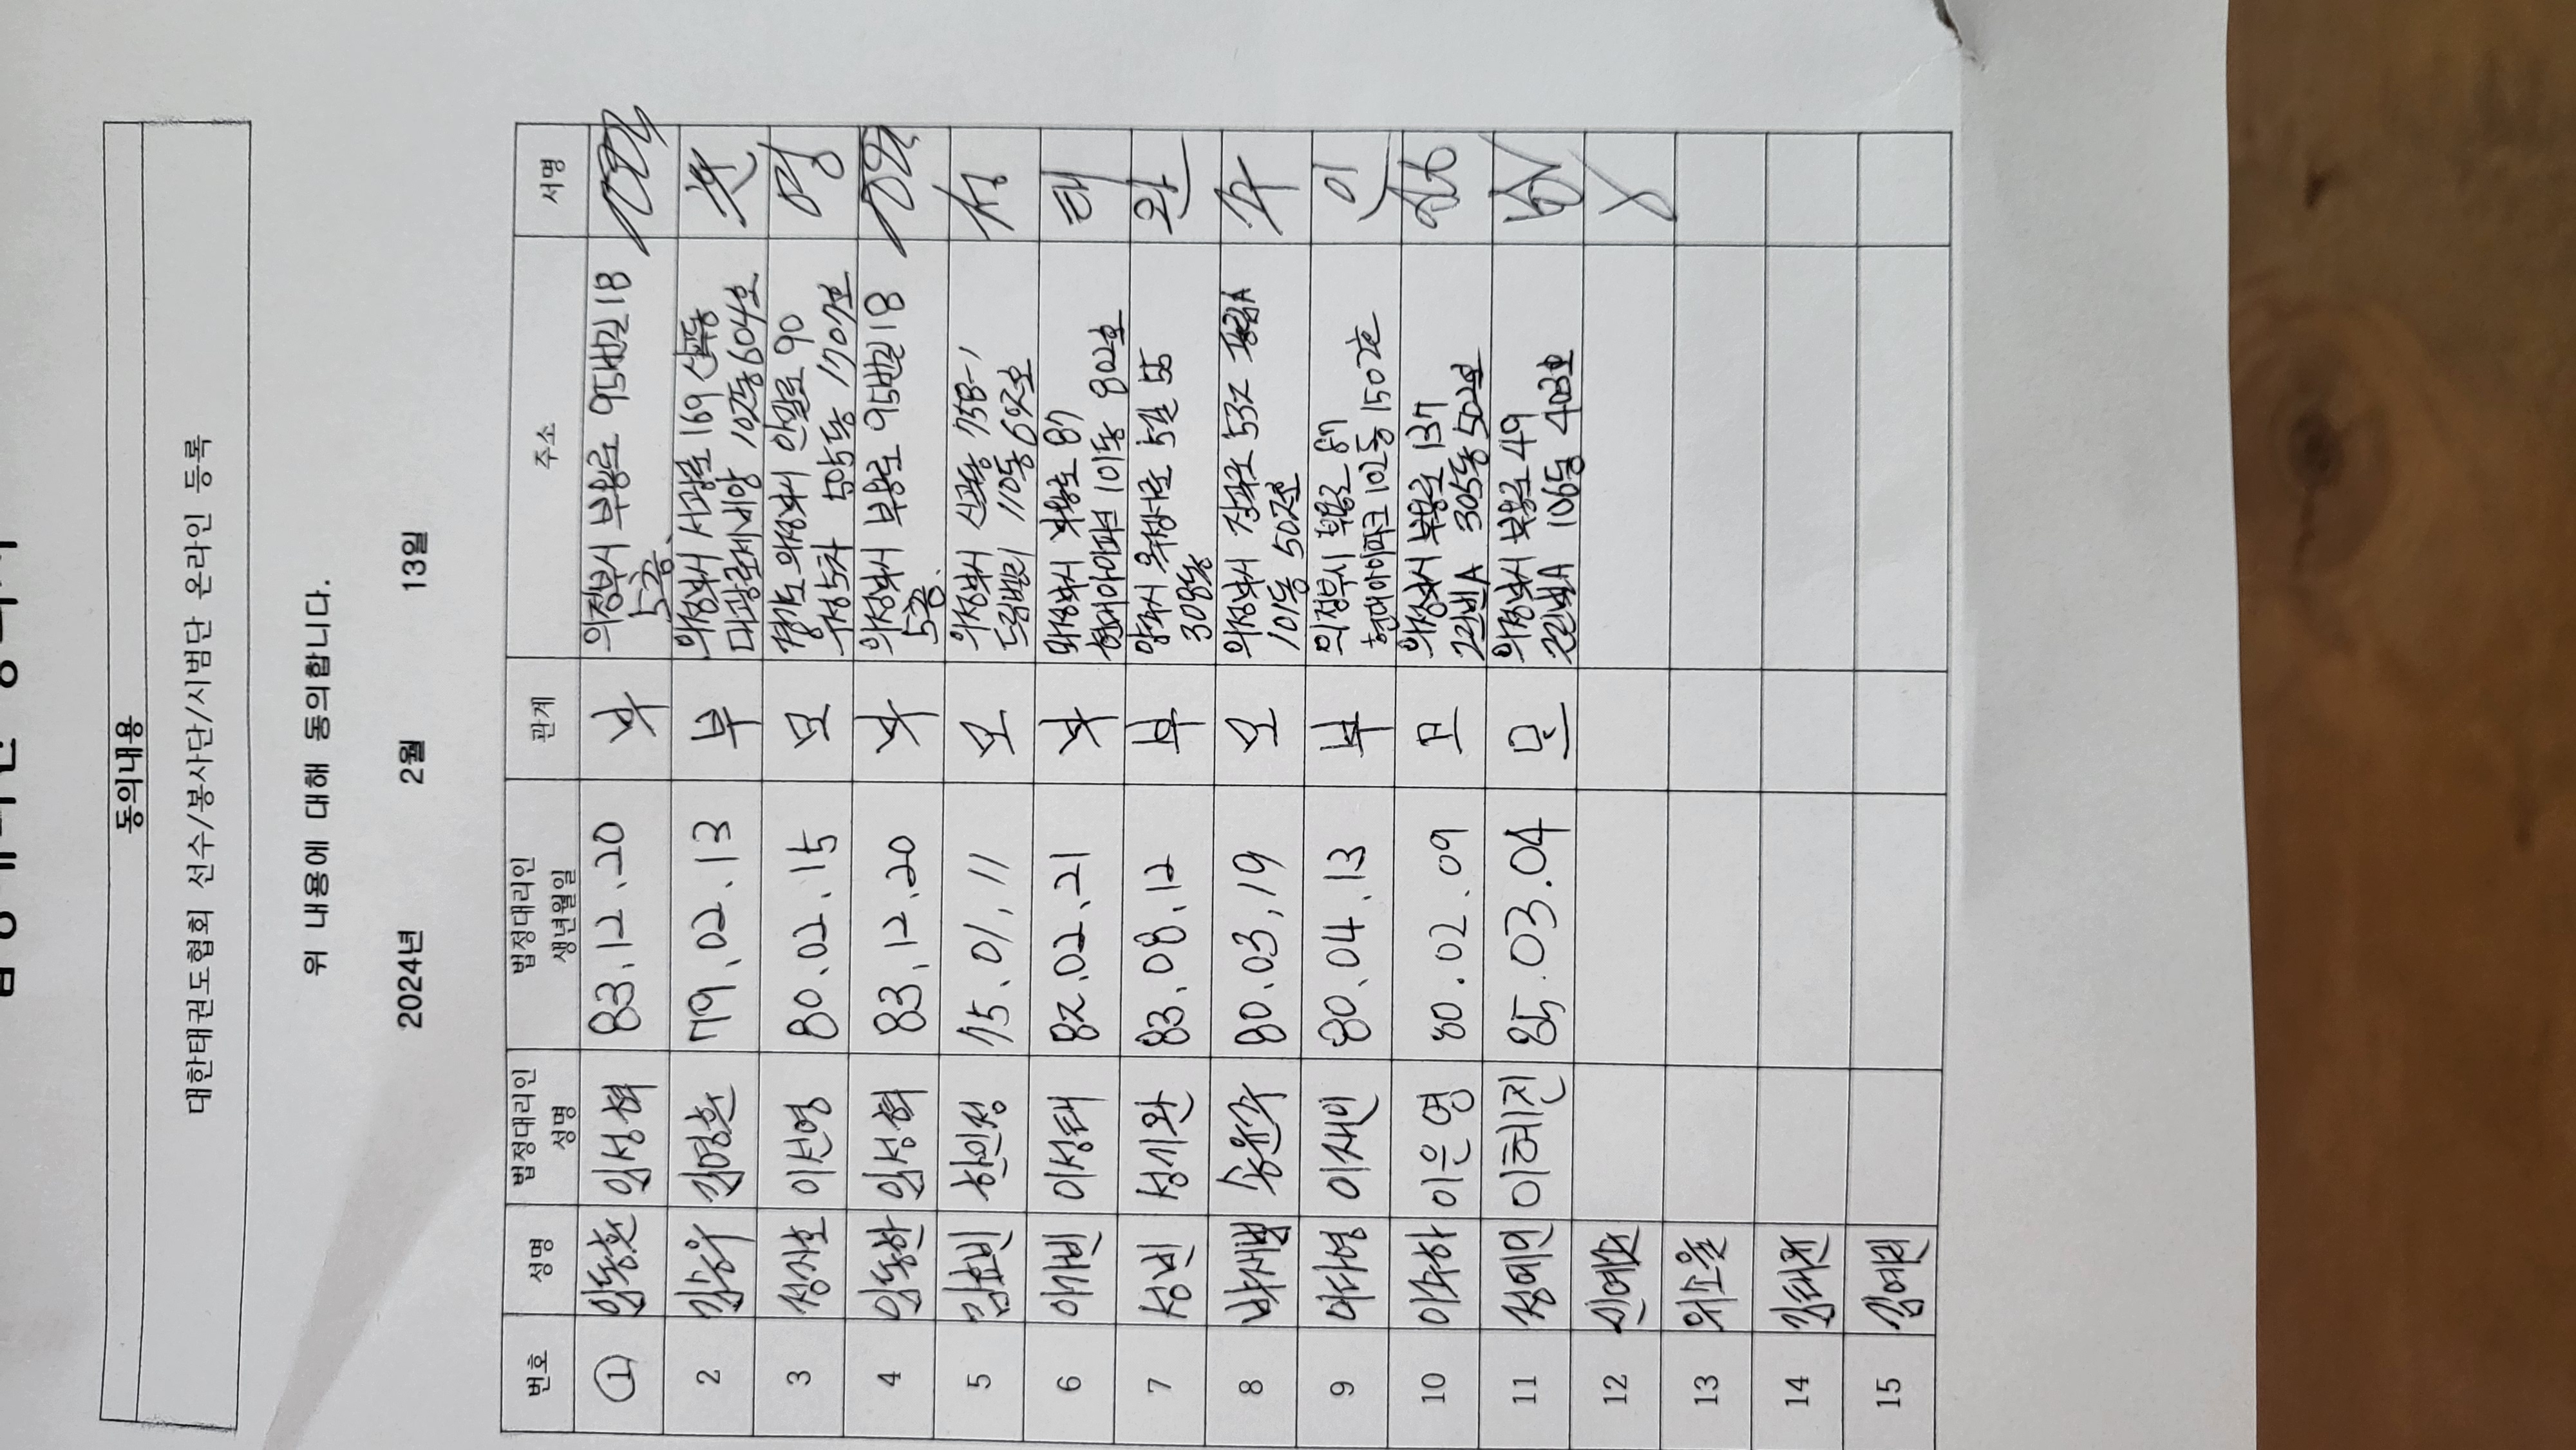 동의내용
대한태권도협회 선수/봉사단/시범단 온라인 등록
위 내용에 대해 동의합니다.
2024년 2월 13일
번호 성명 법정대리인 성명 법정대리인 생년월일 관계 주소 서명
1 임동훈 임성혁 83.12.20 부 의정부시 부용로 95번길 18
5층.
2 김승우 김명훈 79.02.13 부 의정부시 시민로 169 신곡동
102동 604호
3 정지호 이선영 80.02.15 모 경기도 의정부시 안말로 90
505동 1707호
4 임동한 임성혁 83.12.20 부 의정부시 부용로 95번길 18
5층.
5 김효빈 한인정 75.01.11 모 의정부시 신곡동 758-1
드림밸리 110동 692호
6 이가빈 이성태 82.02.21 부 의정부시 부용로 87
현대아이파크 101동 802호
7 성빈 성기완 83.08.12 부 양주시 옥정서로 5길 55
308동
8 박시범 송윤수 80.03.19 모 의정부시 532
101동 507호
9 이서영 이재인 80.04.13 부 의정부시 부용로 87
현대아이파크 102동 1502호
10 이은영 80.02.09 모 의정부시 부용로 137
305동 502호
11 정예인 이혜진 85.03.04 모 의정부시 부용로 49
106동 403호
12
13 위소율
14 김태관
15